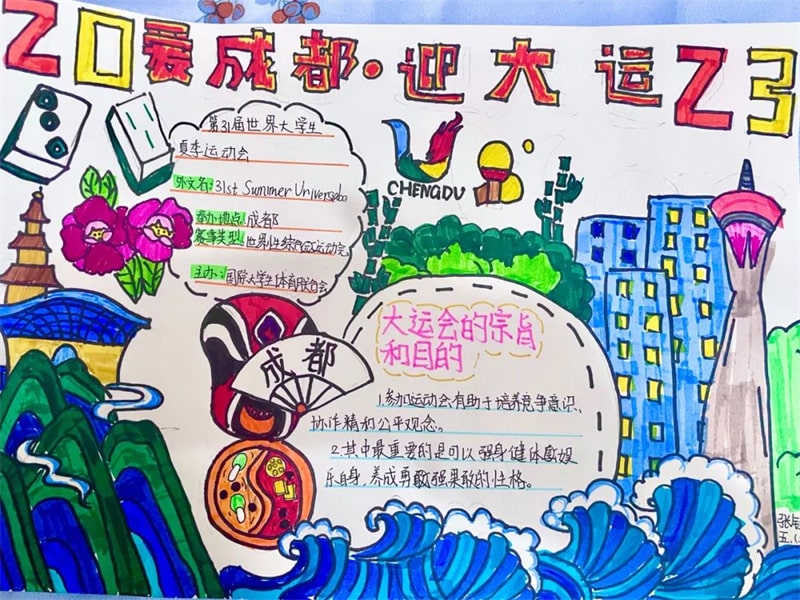 20爱成都·迎大运23
第31届世界大学生
夏季运动会
外文名:31st Summer Universiade
举办地点:成都
赛事类型:世界性综合型运动会
主办:国际大学生体育联合会
CHENGDU
成都
大运会的宗旨
和目的
1.参加运动会有助于培养竞争意识、
协作精和公平观念。
2.其中最重要的是可以强身健体愈娱
乐自身,养成勇敢强果敢的性格。
张
五.(